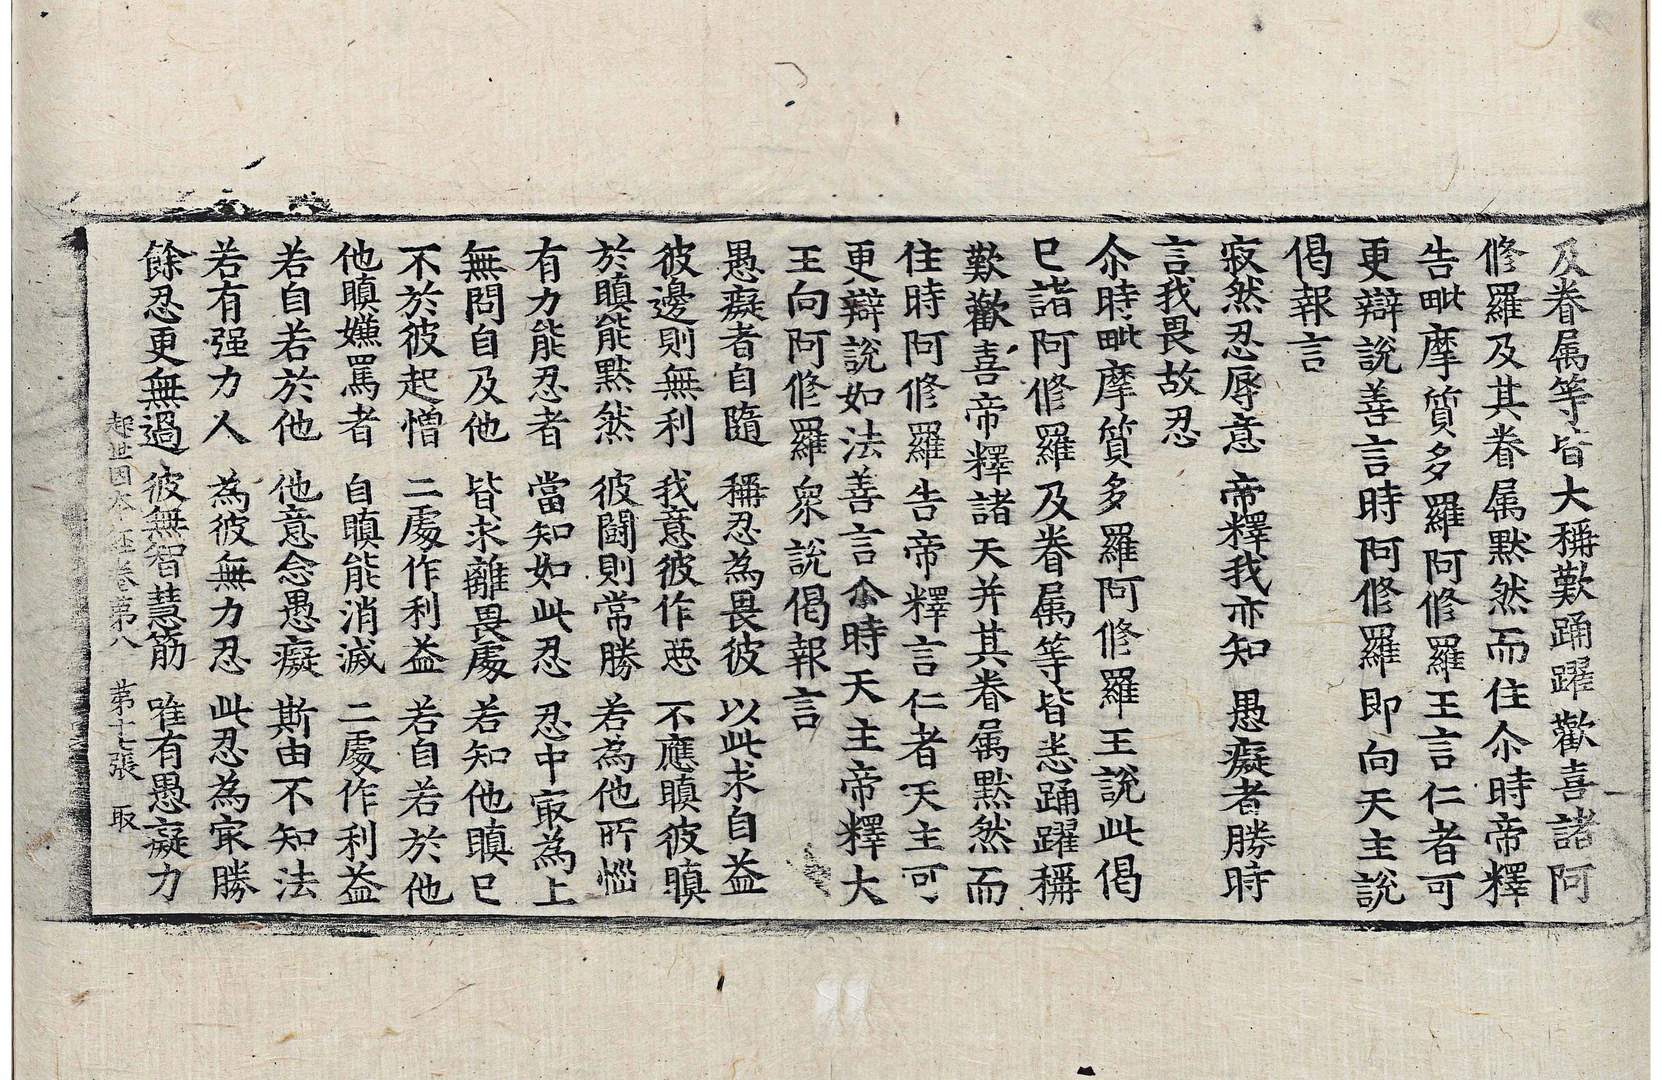 及眷属等皆大稱歎踊躍歡喜諸阿
修羅及其眷属默然而住尒時帝釋
告毗摩質多羅阿修羅王言仁者可
更辯說善言時阿修羅即向天主說
偈報言
寂然忍辱意 帝釋我亦知 愚癡者勝時
言我畏故忍
尒時毗摩質多羅阿修羅王說此偈
已諸阿修羅及眷属等皆悉踊躍稱
歎歡喜帝釋諸天并其眷属默然而
住時阿修羅告帝釋言仁者天主可
更辯說如法善言尒時天主帝釋大
王向阿修羅衆說偈報言
愚癡者自隨 稱忍為畏彼 以此求自益
彼邊則無利 我意彼作惡 不應瞋彼瞋
於瞋能默然 彼鬪則常勝 若為他所惱
有力能忍者 當知如此忍 忍中㝡為上
無問自及他 皆求離畏處 若知他瞋已
不於彼起憎 二處作利益 若自若於他
他瞋嫌罵者 自瞋能消滅 二處作利益
若自若於他 他意念愚癡 斯由不知法
若有强力人 為彼無力忍 此忍為㝡勝
餘忍更無過 彼無智慧筋 唯有愚癡力
起世因本經卷第八 第十七張 取